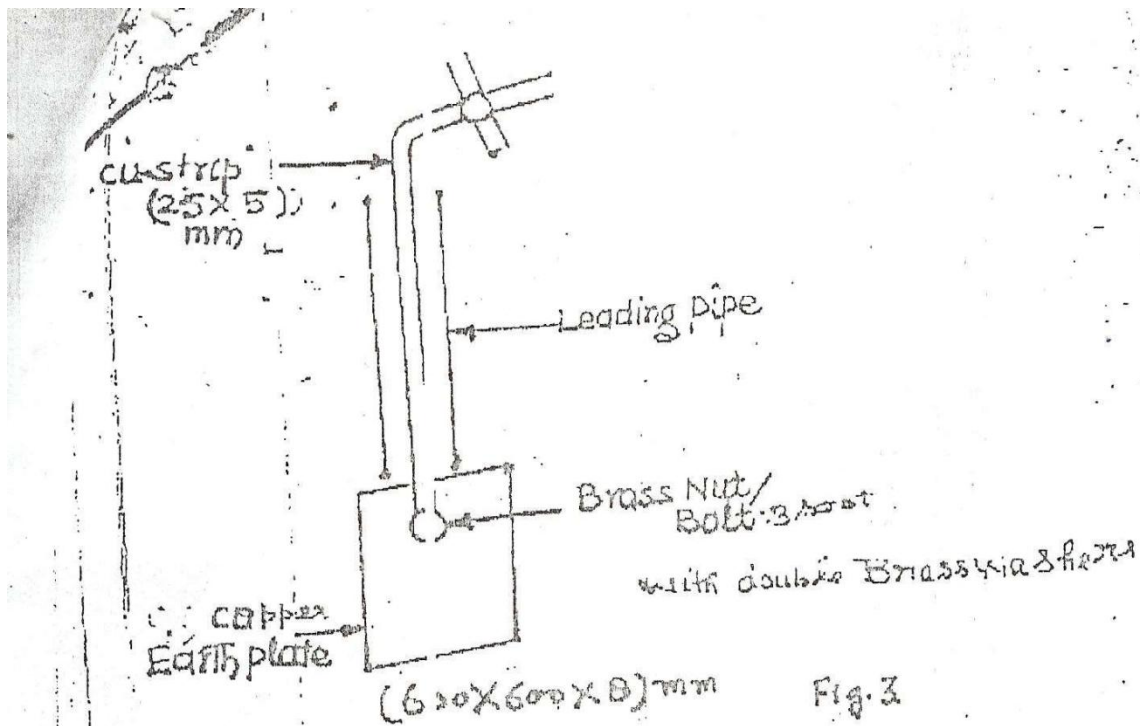 cu-strip
(25 X 5)
mm
Leading pipe
Brass Nut/
Bolt
with double Brass washers
copper
Earth plate
(600X600X8)mm
Fig. 3